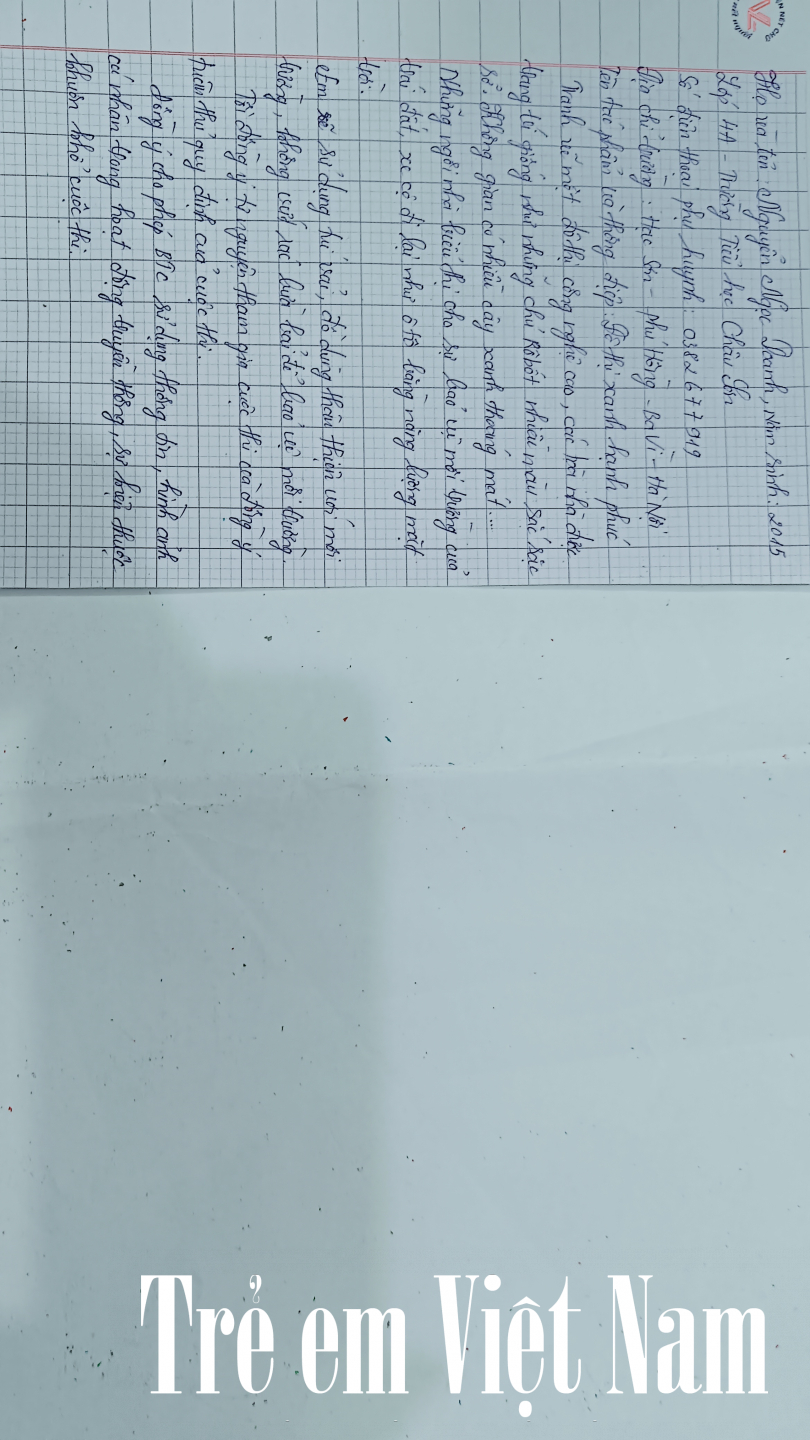 Họ và tên: Nguyễn Ngọc Doanh, Năm sinh: 2015
Lớp 4A - Trường Tiểu học Châu Sơn
Số điện thoại phụ huynh: 0382677919
Địa chỉ trường: Hạc Sơn - Phú Hồng - Ba Vì - Hà Nội
Tên tác phẩm và thông điệp: Đô thị xanh hạnh phúc
Tranh vẽ một đô thị công nghệ cao, các toà nhà được
trang trí giống như những chú Rôbốt nhiều màu sắc sặc
sỡ. Không gian có nhiều cây xanh thoáng mát...
Những ngôi nhà biểu thị cho sự bảo vệ môi trường của
trái đất, xe cộ đi lại như ô tô bằng năng lượng mặt
trời.
Em sẽ sử dụng túi vải, đồ dùng thân thiện với môi
trường, không vứt rác bừa bãi để bảo vệ môi trường.
Tôi đồng ý tự nguyện tham gia cuộc thi và đồng ý
tuân thủ quy định của cuộc thi.
Đồng ý cho phép BTC sử dụng thông tin, hình ảnh
cá nhân trong hoạt động truyền thông, sự kiện thuộc
khuôn khổ cuộc thi.
Trẻ em Việt Nam